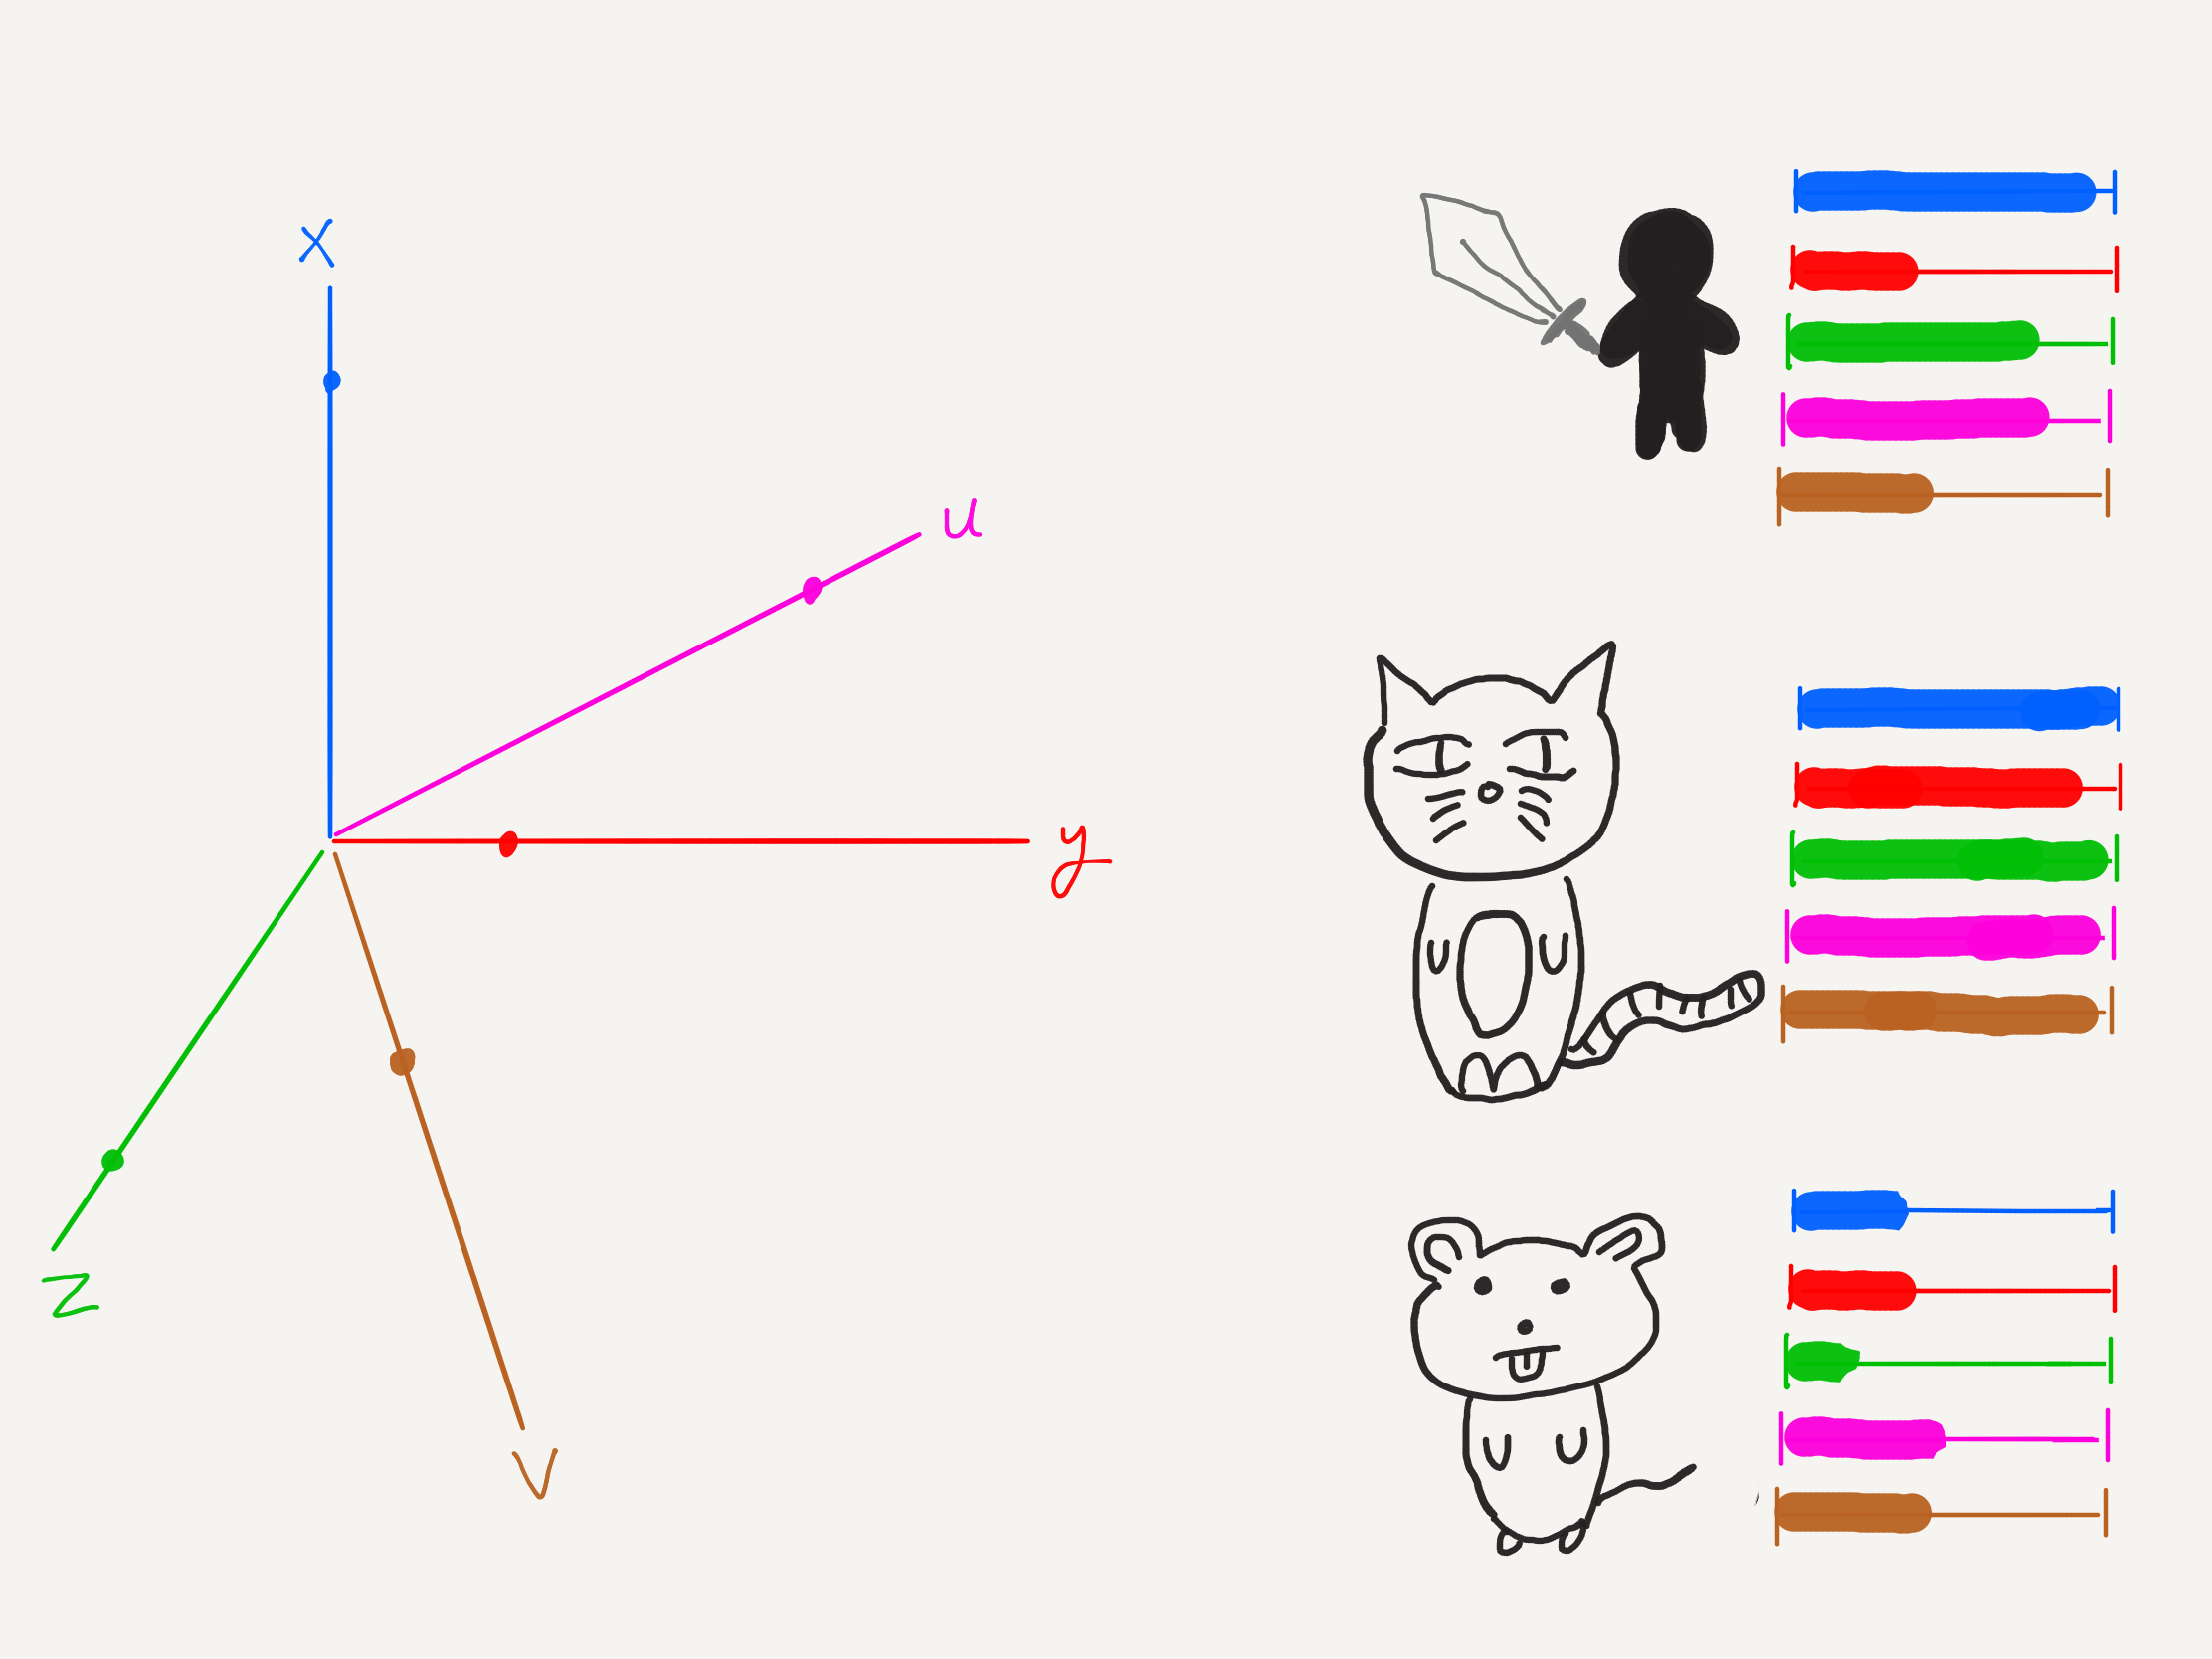 x
u
y
z
v